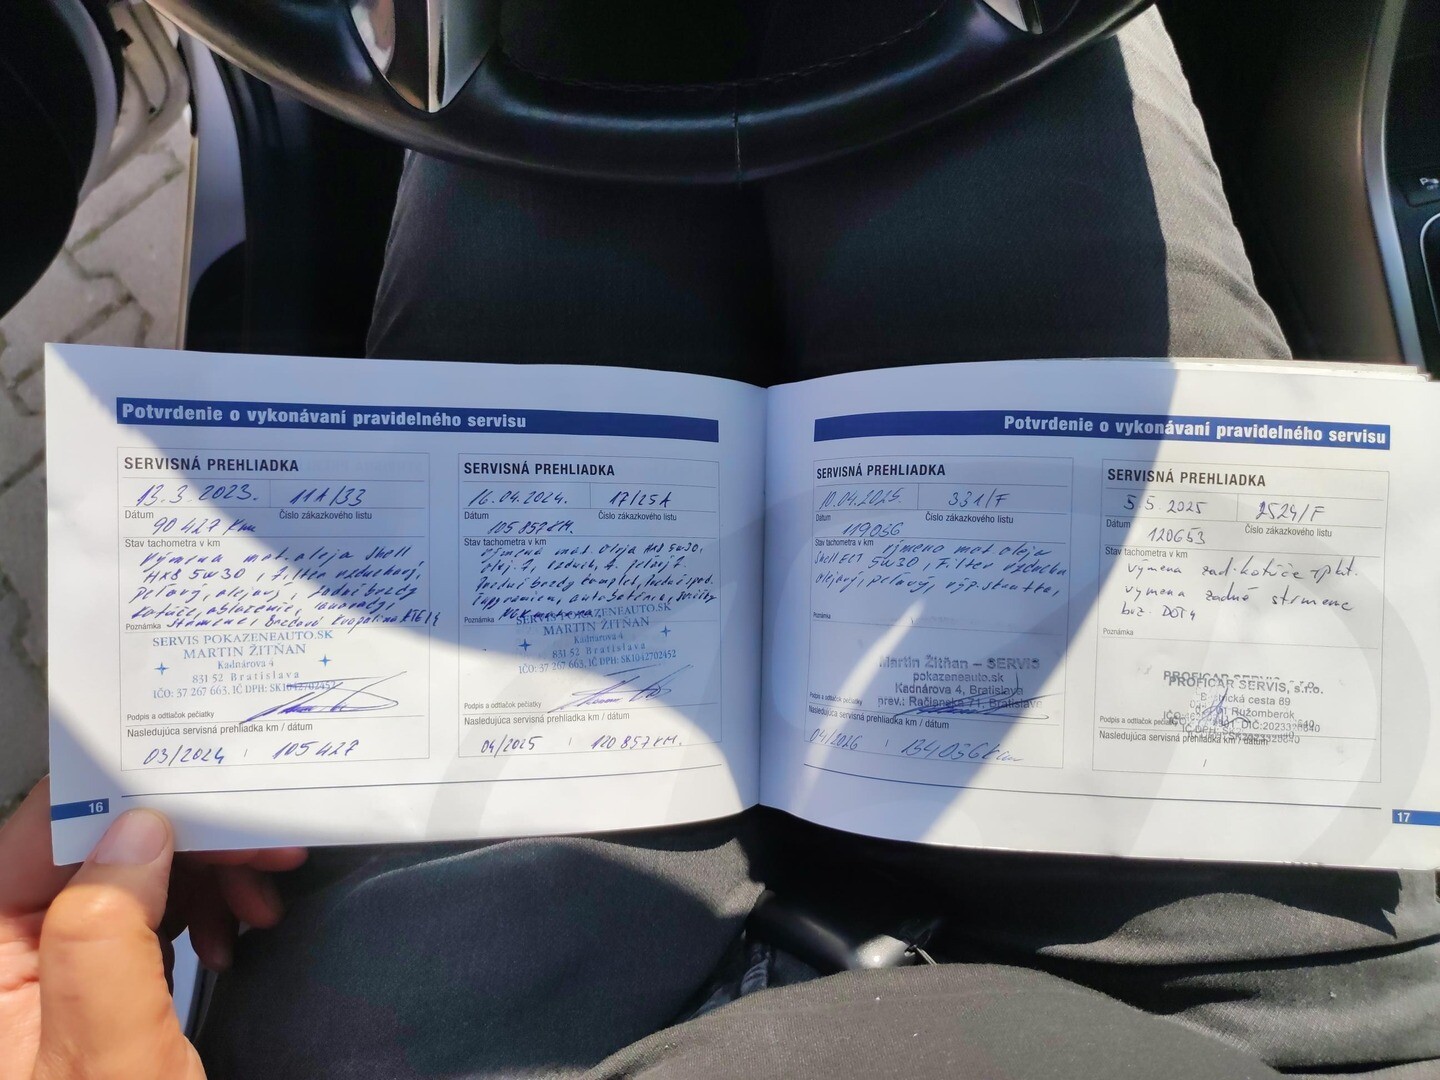 Potvrdenie o vykonávaní pravidelného servisu
SERVISNÁ PREHLIADKA
13.3.2023. 11A/33
Dátum Číslo zákazkového listu
90 427 Km
Stav tachometra v km
Výmena mot. oleja Shell
HX8 5W30, Filter vzduchový,
peľový, olejový, zadné brzdy
kotúče, obloženie,
Poznámka strmene,
SERVIS POKAZENEAUTO.SK
MARTIN ŽITŇAN
Kadnárova 4
831 52 Bratislava
IČO: 37 267 663, IČ DPH: SK1042702452
Podpis a odtlačok pečiatky
Nasledujúca servisná prehliadka km / dátum
03/2024 105 427
16
SERVISNÁ PREHLIADKA
16.04.2024. 17/25A
Dátum Číslo zákazkového listu
105 857 KM.
Stav tachometra v km
Výmena mot. oleja HX8 5W30,
olej. f, vzduch. f. peľový f.
brzdy komplet,
autobatéria, sviečky
NGK
Poznámka
SERVIS POKAZENEAUTO.SK
MARTIN ŽITŇAN
Kadnárova 4
831 52 Bratislava
IČO: 37 267 663, IČ DPH: SK1042702452
Podpis a odtlačok pečiatky
Nasledujúca servisná prehliadka km / dátum
04/2025 120 857 KM.
Potvrdenie o vykonávaní pravidelného servisu
SERVISNÁ PREHLIADKA
10.04.2025. 331/F
Dátum Číslo zákazkového listu
119056
Stav tachometra v km výmena mot. oleja
Shell ECT 5W30, Filter vzduchu
olejový, peľový, výp. skrutka,
Poznámka
Martin Žitňan – SERVIS
pokazeneauto.sk
Kadnárova 4, Bratislava
prev.: Račianska 71, Bratislava
Podpis a odtlačok pečiatky
Nasledujúca servisná prehliadka km / dátum
04/2026 134 056 km
SERVISNÁ PREHLIADKA
5 5. 2025 2524/F
Dátum Číslo zákazkového listu
120653
Stav tachometra v km
výmena zad. kotúče + plat.
výmena zadné strmene
brz. DOT4
Poznámka
PROFICAR SERVIS, s.r.o.
cesta 89
Ružomberok
Podpis a odtlačok pečiatky
Nasledujúca servisná prehliadka km / dátum
17